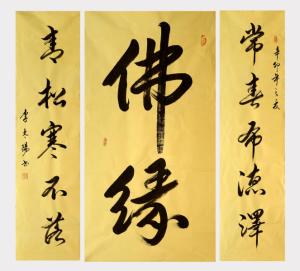 辛卯年之夏
常春布德泽
佛缘
青松寒不落